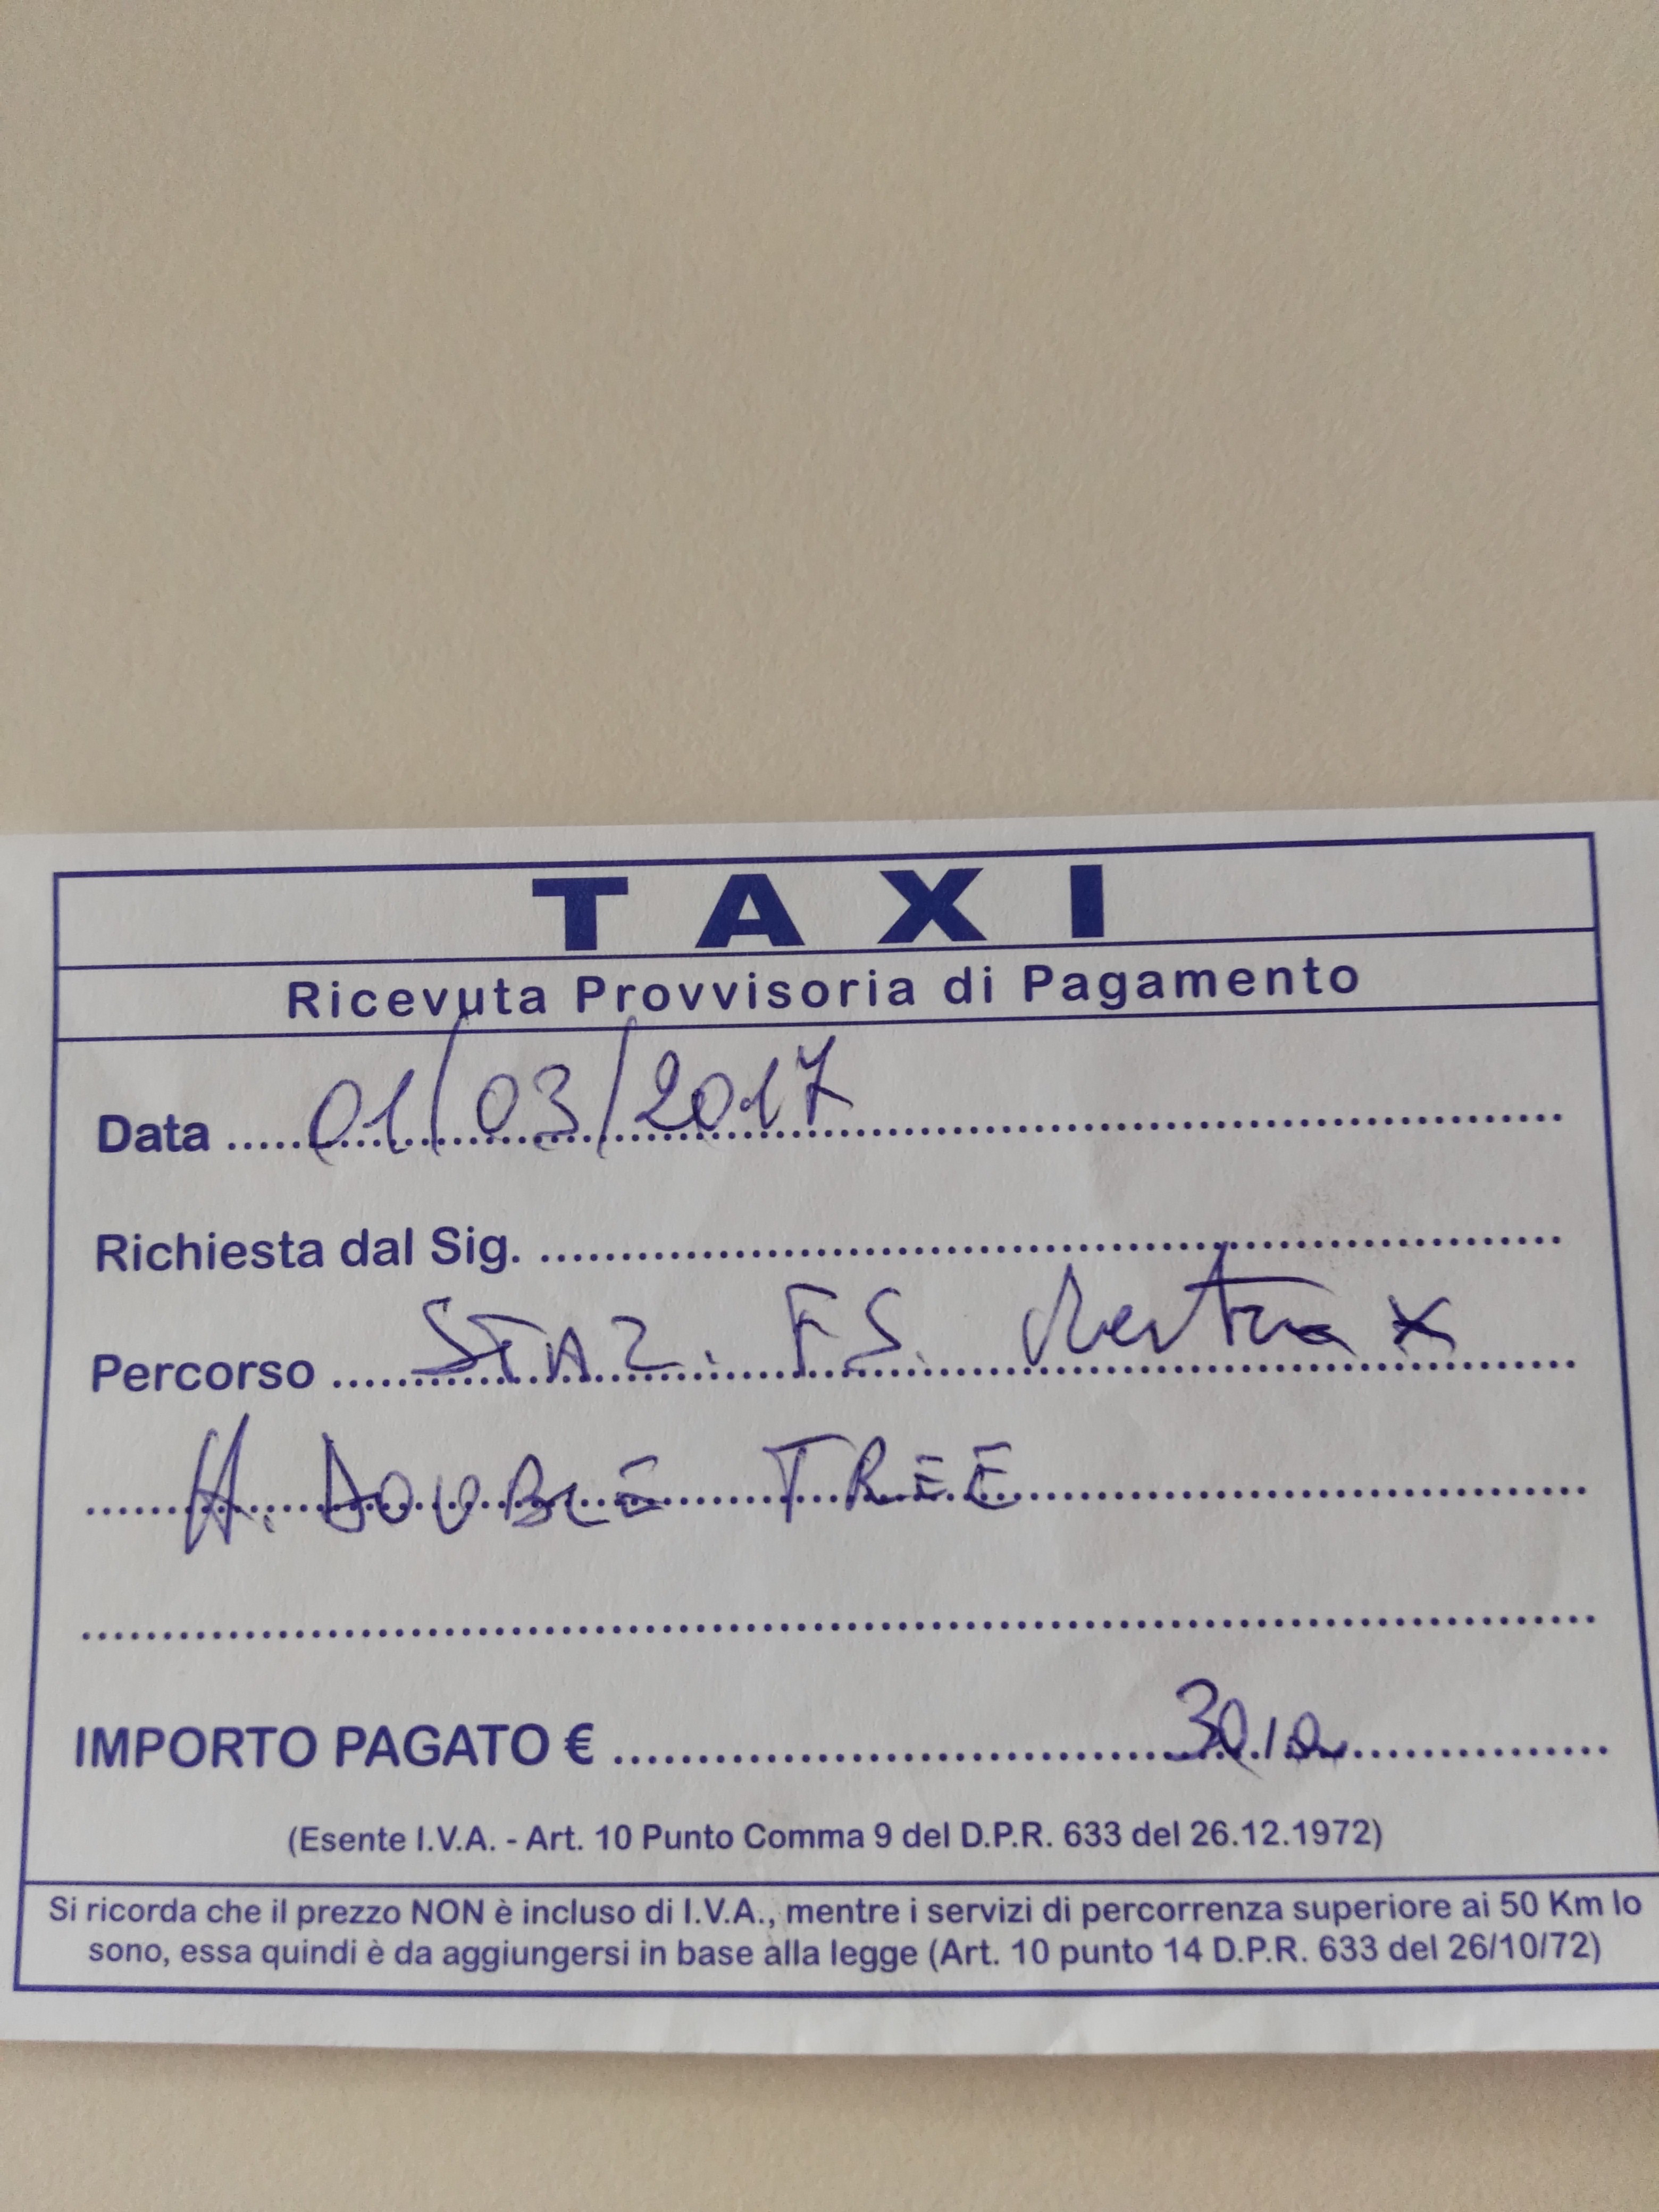 TAXI
Ricevuta Provvisoria di Pagamento
Data 01/03/2017
Richiesta dal Sig.
Percorso STAZ. FS. Mestre X
H. DOUBLE TREE
IMPORTO PAGATO € 30,00
(Esente I.V.A. - Art. 10 Punto Comma 9 del D.P.R. 633 del 26.12.1972)
Si ricorda che il prezzo NON è incluso di I.V.A., mentre i servizi di percorrenza superiore ai 50 Km lo
sono, essa quindi è da aggiungersi in base alla legge (Art. 10 punto 14 D.P.R. 633 del 26/10/72)